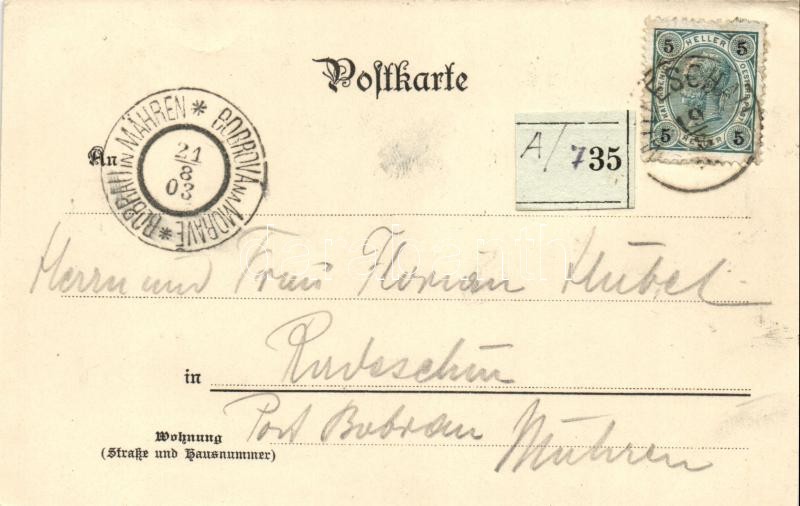 Postkarte
5 HELLER 5
5 HELLER 5
A/ 735
BOBRAU IN MÄHREN * BOBROVA NA MORAVĚ *
21
8
03
An
Herrn und Frau Florian Hübel
in Radeschin
Post Bobrau
Wohnung
(Straße und Hausnummer)
Mähren